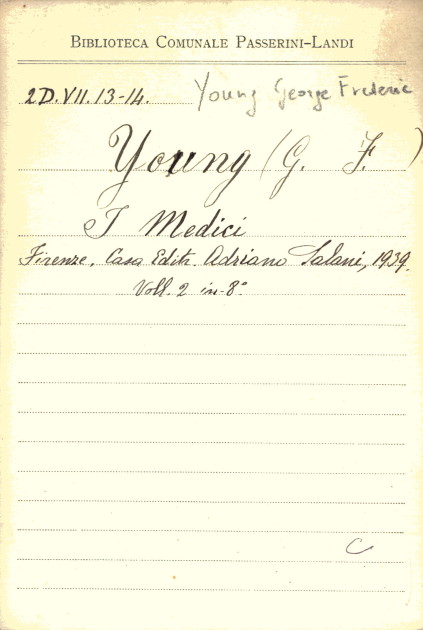 Biblioteca Comunale Passerini-Landi
2D.VII.13-14. Young George Frederic
Young (G. F.)
I Medici
Firenze. Casa Edit. Adriano Salani, 1939.
Voll. 2 in-8°
C